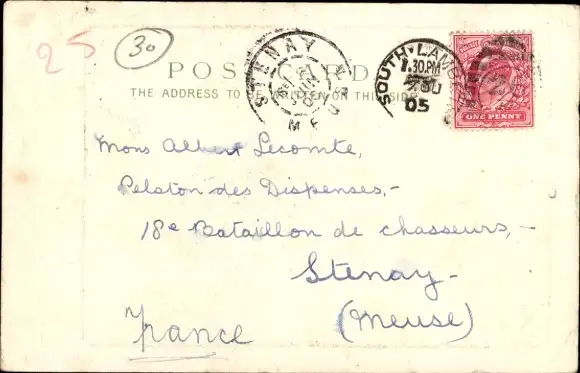 25
30
POST CARD
THE ADDRESS TO BE WRITTEN ON THIS SIDE
STENAY
MEUSE
SOUTH-LAMBETH
1.30.PM
05
ONE PENNY
Mons Albert Lecomte,
Peloton des Dispenses,-
18e Bataillon de chasseurs,-
Stenay-
(Meuse)
France